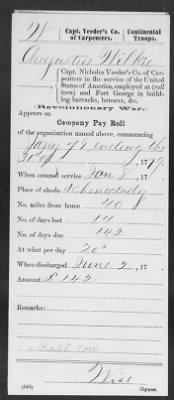 W
Capt. Veeder's Co. of Carpenters.
Continental Troops.
Augustus Wilkie
Capt. Nicholas Veeder's Co. of Carpenters in the service of the United States of America, employed at (roll torn) and Fort George in building barracks, bateaux, &c.
(Revolutionary War.)
Appears on
Company Pay Roll
of the organization named above, commencing
Jany 7 & ending the
31st of , 1779.
When entered service Jan 8, 17
Place of abode Schenectady
No. miles from home 40
No. of days lost 14
No. of days due 142
At what per day 20s
When discharged June 2, 17
Amount £ 142
Remarks:
Wise
Copyist.